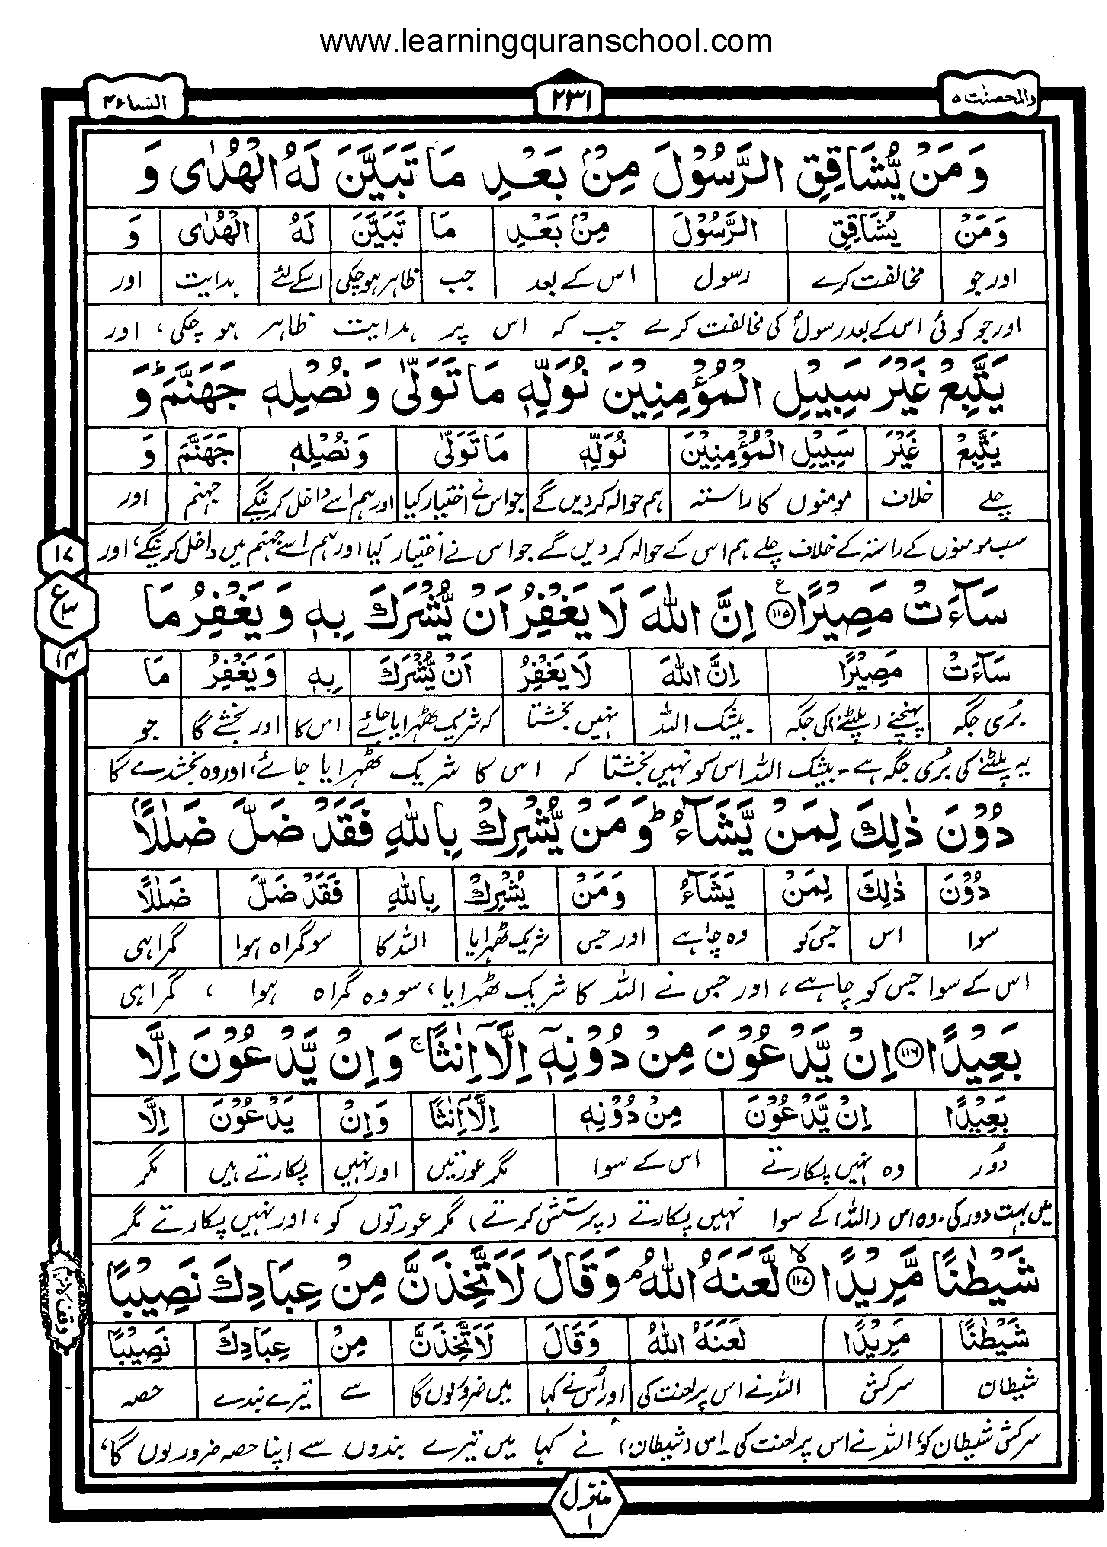 www.learningquranschool.com
والمحصنت ۵
۲۳۱
النساء ۴
وَمَنْ يُّشَاقِقِ الرَّسُوْلَ مِنْۢ بَعْدِ مَا تَبَيَّنَ لَهُ الْهُدٰى وَ
وَمَنْ يُشَاقِقِ الرَّسُوْلَ مِنْۢ بَعْدِ مَا تَبَيَّنَ لَهُ الْهُدٰى وَ
اور جو مخالفت کرے رسول اس کے بعد جب ظاہر ہوچکی اسکے لئے ہدایت اور
اور جو کوئی اس کے بعد رسولؐ کی مخالفت کرے جب کہ اس پر ہدایت ظاہر ہو چکی، اور
يَتَّبِعْ غَيْرَ سَبِيْلِ الْمُؤْمِنِيْنَ نُوَلِّهٖ مَا تَوَلّٰى وَنُصْلِهٖ جَهَنَّمَ ۭ وَ
يَتَّبِعْ غَيْرَ سَبِيْلِ الْمُؤْمِنِيْنَ نُوَلِّهٖ مَا تَوَلّٰى وَنُصْلِهٖ جَهَنَّمَ وَ
چلے خلاف مومنوں کا راستہ ہم حوالہ کردیں گے جو اس نے اختیار کیا اور ہم اسے داخل کرینگے جہنم اور
سب مومنوں کے راستہ کے خلاف چلے ہم اس کے حوالہ کردیں گے جو اس نے اختیار کیا اور ہم اسے جہنم میں داخل کرینگے، اور
۱۷
ع
۳
۱۴
سَآءَتْ مَصِيْرًا ۱۱۵ ع اِنَّ اللّٰهَ لَا يَغْفِرُ اَنْ يُّشْرَكَ بِهٖ وَيَغْفِرُ مَا
سَآءَتْ مَصِيْرًا اِنَّ اللّٰهَ لَا يَغْفِرُ اَنْ يُّشْرَكَ بِهٖ وَيَغْفِرُ مَا
بُری جگہ پہنچنے (پلٹنے) کی جگہ بیشک اللہ نہیں بخشتا کہ شریک ٹھہرایا جائے اس کا اور بخشے گا جو
یہ پلٹنے کی بُری جگہ ہے۔ بیشک اللہ اس کو نہیں بخشتا کہ اس کا شریک ٹھہرایا جائے، اور وہ بخشدے گا
دُوْنَ ذٰلِكَ لِمَنْ يَّشَآءُ ۭ وَمَنْ يُّشْرِكْ بِاللّٰهِ فَقَدْ ضَلَّ ضَلٰلًۢا
دُوْنَ ذٰلِكَ لِمَنْ يَشَآءُ وَمَنْ يُشْرِكْ بِاللّٰهِ فَقَدْ ضَلَّ ضَلٰلًا
سوا اس جس کو وہ چاہے اور جس شریک ٹھہرایا اللہ کا سو گمراہ ہوا گمراہی
اس کے سوا جس کو چاہے، اور جس نے اللہ کا شریک ٹھہرایا، سو وہ گمراہ ہوا ، گمراہی
بَعِيْدًا ۱۱۶ اِنْ يَّدْعُوْنَ مِنْ دُوْنِهٖٓ اِلَّآ اِنٰثًا ۚ وَاِنْ يَّدْعُوْنَ اِلَّا
بَعِيْدًا اِنْ يَّدْعُوْنَ مِنْ دُوْنِهٖ اِلَّآ اِنٰثًا وَاِنْ يَدْعُوْنَ اِلَّا
دُور وہ نہیں پکارتے اس کے سوا مگر عورتیں اور نہیں پکارتے ہیں مگر
میں بہت دور کی۔ وہ اس (اللہ) کے سوا نہیں پکارتے (پرستش کرتے) مگر عورتوں کو، اور نہیں پکارتے مگر
شَيْطٰنًا مَّرِيْدًا ۱۱۷ ۙ لَّعَنَهُ اللّٰهُ ۘ وَقَالَ لَاَتَّخِذَنَّ مِنْ عِبَادِكَ نَصِيْبًا
شَيْطٰنًا مَرِيْدًا لَعَنَهُ اللّٰهُ وَقَالَ لَاَتَّخِذَنَّ مِنْ عِبَادِكَ نَصِيْبًا
شیطان سرکش اللہ نے اس پر لعنت کی اور اُس نے کہا میں ضرور لوں گا سے تیرے بندے حصہ
سرکش شیطان کو، اللہ نے اس پر لعنت کی۔ اس (شیطان) نے کہا میں تیرے بندوں سے اپنا حصہ ضرور لوں گا،
منزل
۱